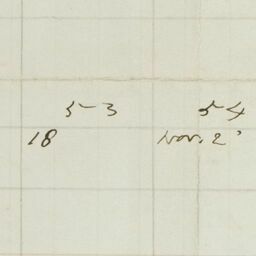 53 54
18 Nov. 2